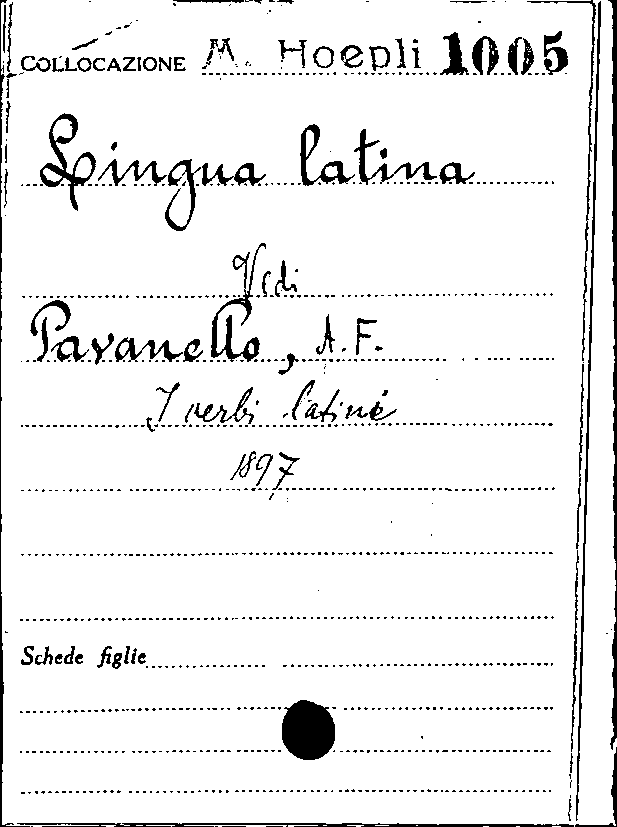 COLLOCAZIONE M. Hoepli 1005
Lingua latina
Vedi
Pavanello, A.F.
I verbi latini
1897
Schede figlie